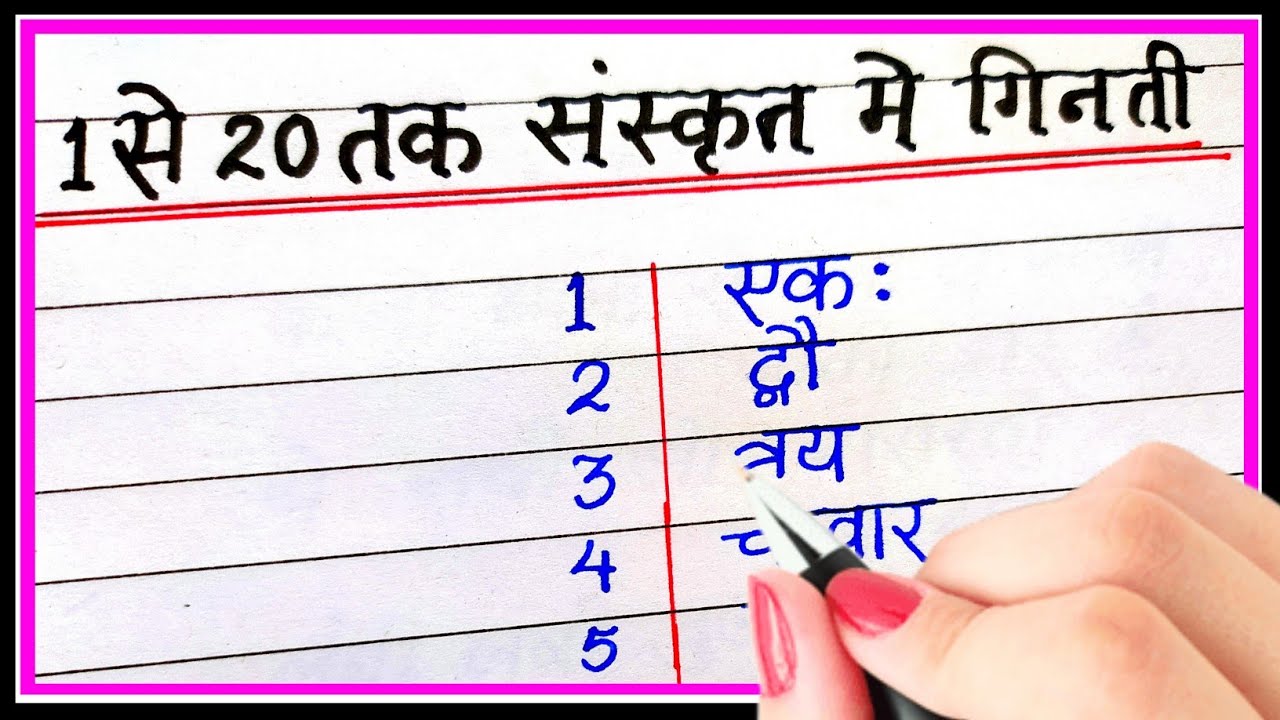 1 से 20 तक संस्कृत मे गिनती
1 एक:
2 द्वौ
3 त्रय
4
5